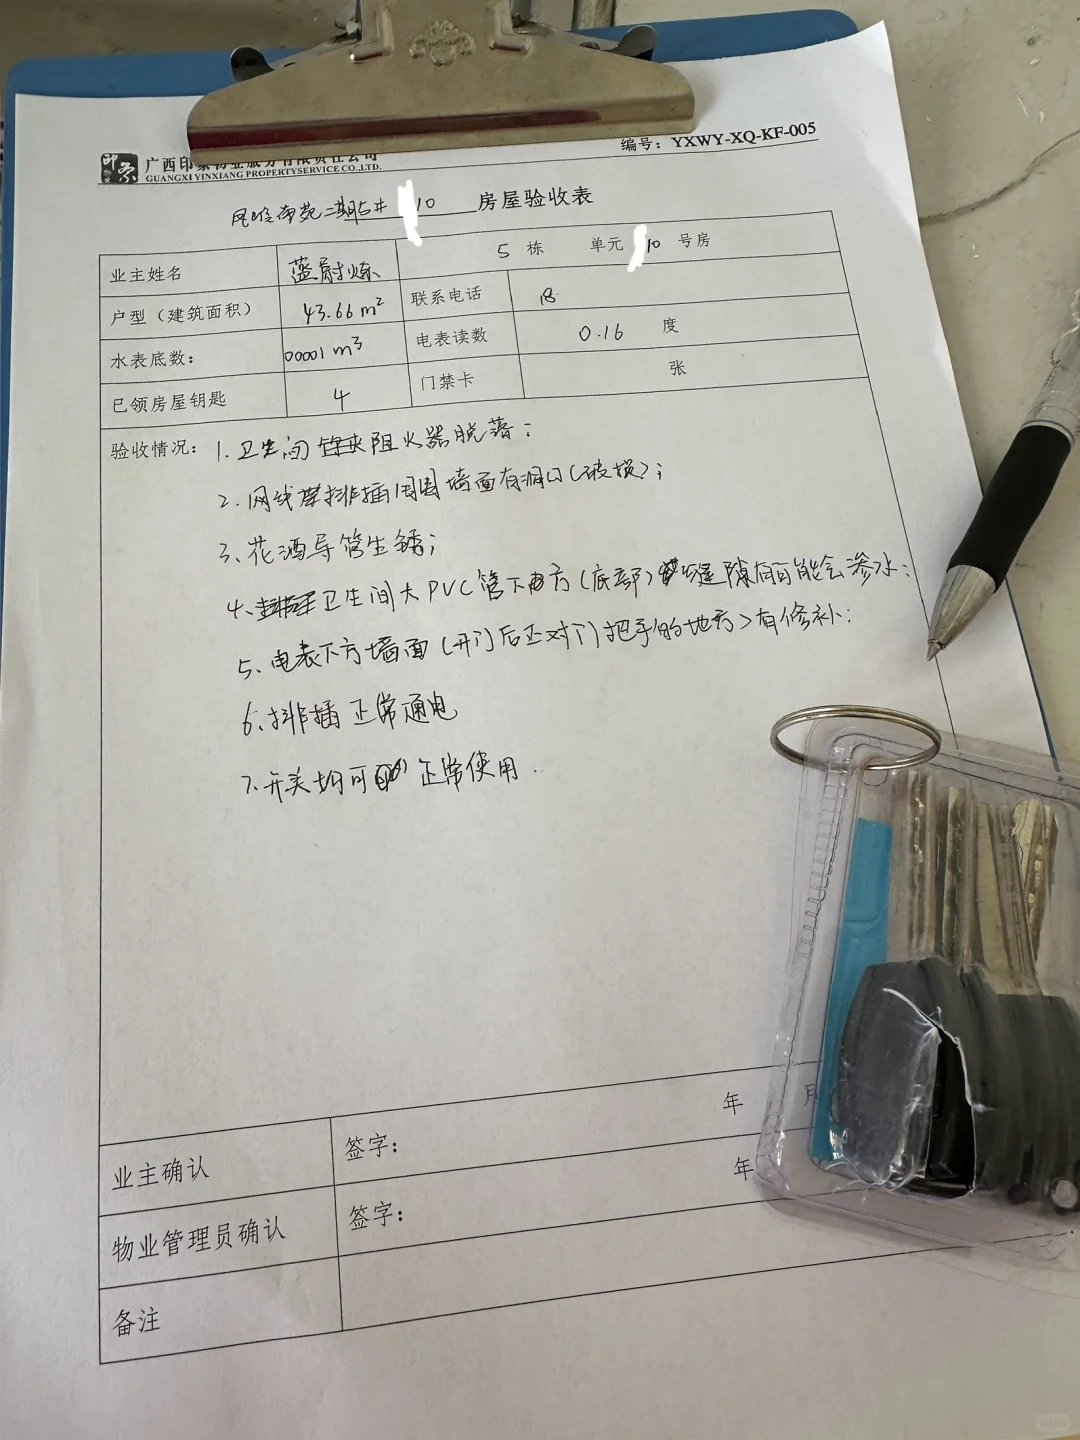 编号：YXWY-XQ-KF-005
印象 广西印象物业服务有限责任公司
GUANGXI YINXIANG PROPERTYSERVICE CO.,LTD.
二期5# 10 房屋验收表
业主姓名 蓝尉炼 5 栋 单元 10 号房
户型（建筑面积） 43.66 m² 联系电话 18
水表底数： 00001 m³ 电表读数 0.16 度
已领房屋钥匙 4 门禁卡 张
验收情况： 1.卫生间 阻火器脱落；
2.网线 排插周围墙面有洞口(破损)；
3、花洒导管生锈；
4、卫生间大PVC管下方(底部) 缝隙 可能会渗水；
5、电表下方墙面(开门后正对门把手的地方)有修补；
6、排插正常通电
7.开关均可 正常使用.
年 月
业主确认 签字：
年
物业管理员确认 签字：
备注